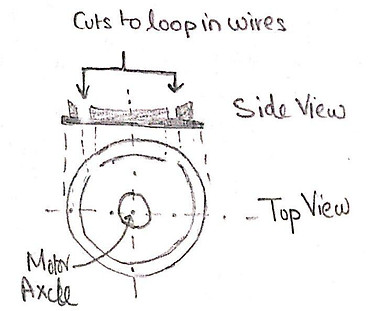 Cuts to loop in wires
Side View
Top View
Motor
Axcle